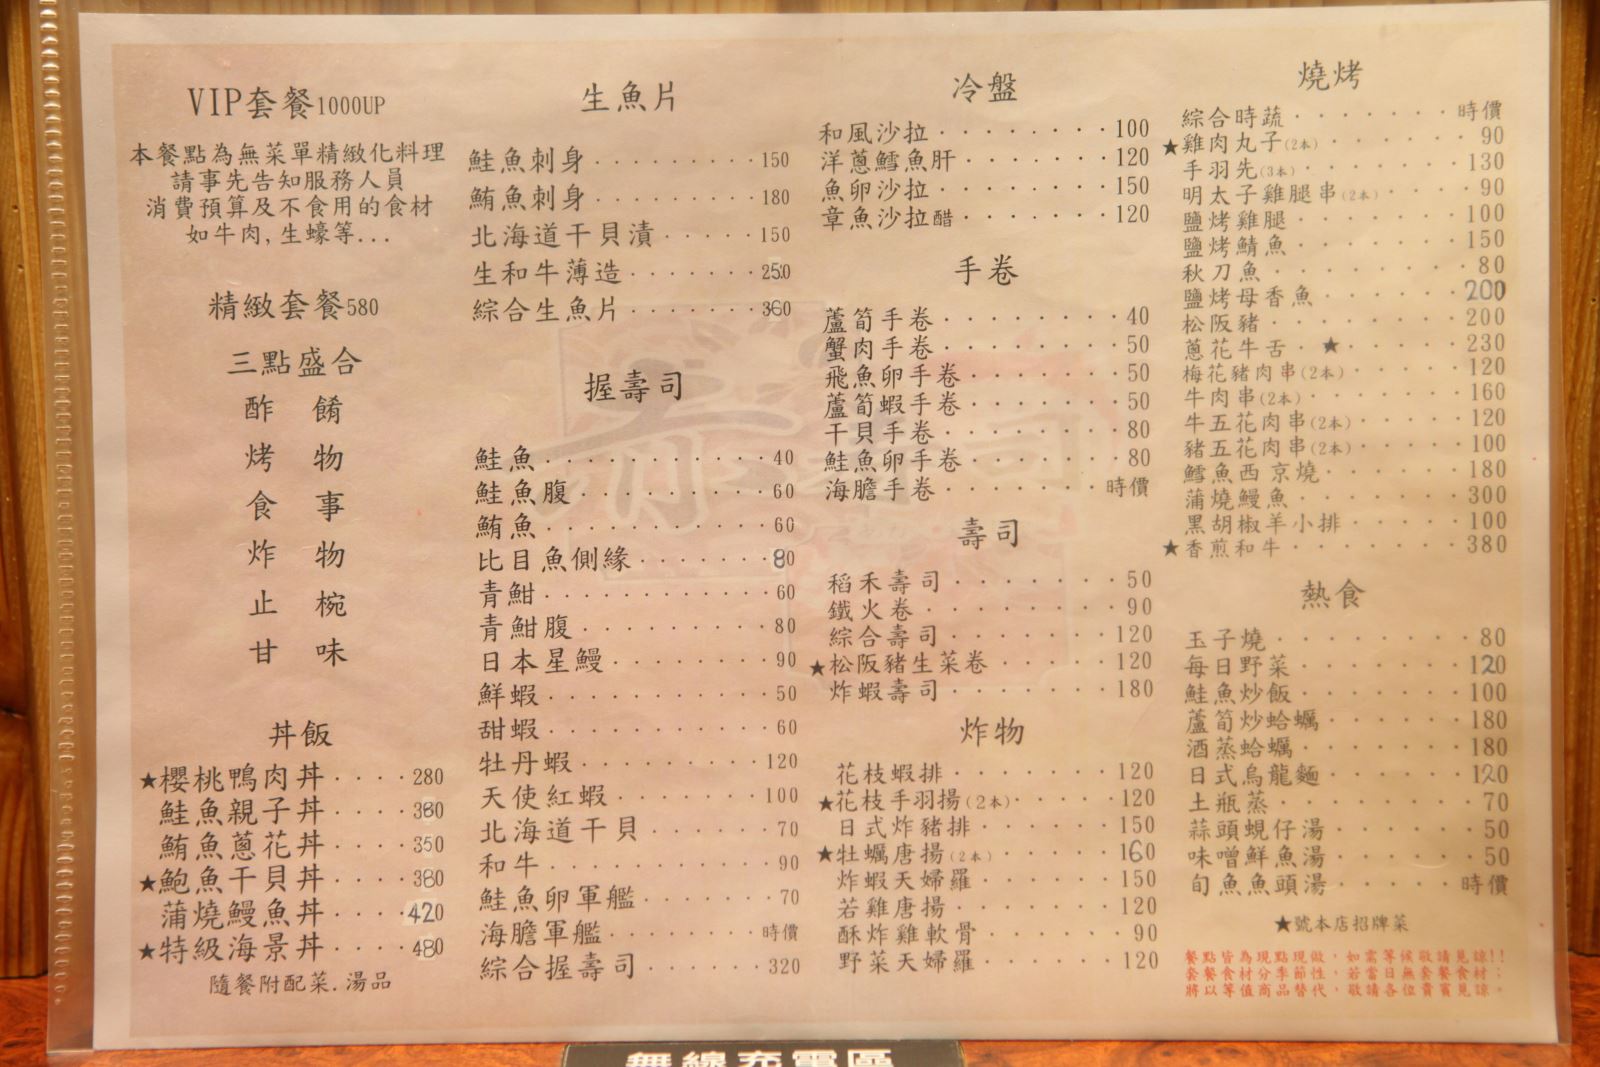 VIP套餐1000UP
本餐點為無菜單精緻化料理
請事先告知服務人員
消費預算及不食用的食材
如牛肉,生蠔等...
精緻套餐580
三點盛合
酢 餚
烤 物
食 事
炸 物
止 椀
甘 味
丼飯
★櫻桃鴨肉丼····280
鮭魚親子丼····380
鮪魚蔥花丼····350
★鮑魚干貝丼····380
蒲燒鰻魚丼····420
★特級海景丼····480
隨餐附配菜.湯品
生魚片
鮭魚刺身·········150
鮪魚刺身·········180
北海道干貝漬·····150
生和牛薄造·······250
綜合生魚片·······360
握壽司
鮭魚···········40
鮭魚腹·········60
鮪魚···········60
比目魚側緣·······80
青魽···········60
青魽腹·········80
日本星鰻········90
鮮蝦···········50
甜蝦···········60
牡丹蝦·········120
天使紅蝦········100
北海道干貝······70
和牛···········90
鮭魚卵軍艦······70
海膽軍艦·······時價
綜合握壽司······320
冷盤
和風沙拉·······100
洋蔥鱈魚肝······120
魚卵沙拉·······150
章魚沙拉醋······120
手卷
蘆筍手卷·······40
蟹肉手卷·······50
飛魚卵手卷······50
蘆筍蝦手卷······50
干貝手卷·······80
鮭魚卵手卷······80
海膽手卷·······時價
壽司
稻禾壽司·······50
鐵火卷········90
綜合壽司·······120
★松阪豬生菜卷·····120
炸蝦壽司·······180
炸物
花枝蝦排·······120
★花枝手羽揚(2本)·····120
日式炸豬排······150
★牡蠣唐揚(2本)·····160
炸蝦天婦羅······150
若雞唐揚·······120
酥炸雞軟骨······90
野菜天婦羅······120
燒烤
綜合時蔬·······時價
★雞肉丸子(2本)······90
手羽先(3本)·······130
明太子雞腿串(2本)····90
鹽烤雞腿·······100
鹽烤鯖魚·······150
秋刀魚········80
鹽烤母香魚······200
松阪豬········200
蔥花牛舌·★·····230
梅花豬肉串(2本)·····120
牛肉串(2本)·······160
牛五花肉串(2本)·····120
豬五花肉串(2本)·····100
鱈魚西京燒······180
蒲燒鰻魚·······300
黑胡椒羊小排·····100
★香煎和牛·······380
熱食
玉子燒········80
每日野菜·······120
鮭魚炒飯·······100
蘆筍炒蛤蠣······180
酒蒸蛤蠣·······180
日式烏龍麵······120
土瓶蒸········70
蒜頭蜆仔湯······50
味噌鮮魚湯······50
旬魚魚頭湯·····時價
★號本店招牌菜
餐點皆為現點現做,如需等候敬請見諒!!
套餐食材分季節性,若當日無套餐食材;
將以等值商品替代,敬請各位貴賓見諒。
無線充電區